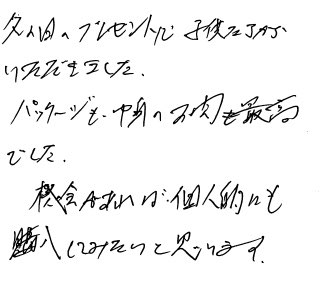 父の日のプレゼントで子供たちから
いただきました。
パッケージも、中身のお肉も最高
でした。
機会があれば個人的にも
購入してみたいと思います。